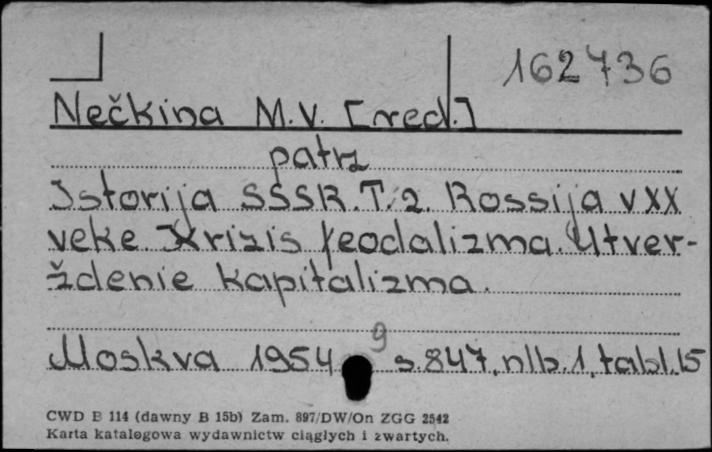 162736
Nečkina M.V. [red.]
patrz
Istorija SSSR. T. 2. Rossija v XX
veke. Krizis feodalizma. Utver-
ždenie kapitalizma.
9
Moskva 1954 s. 847, nlb. 1, tabl. 15
CWD B 114 (dawny B 15b) Zam. 897/DW/On ZGG 2542
Karta katalogowa wydawnictw ciągłych i zwartych.